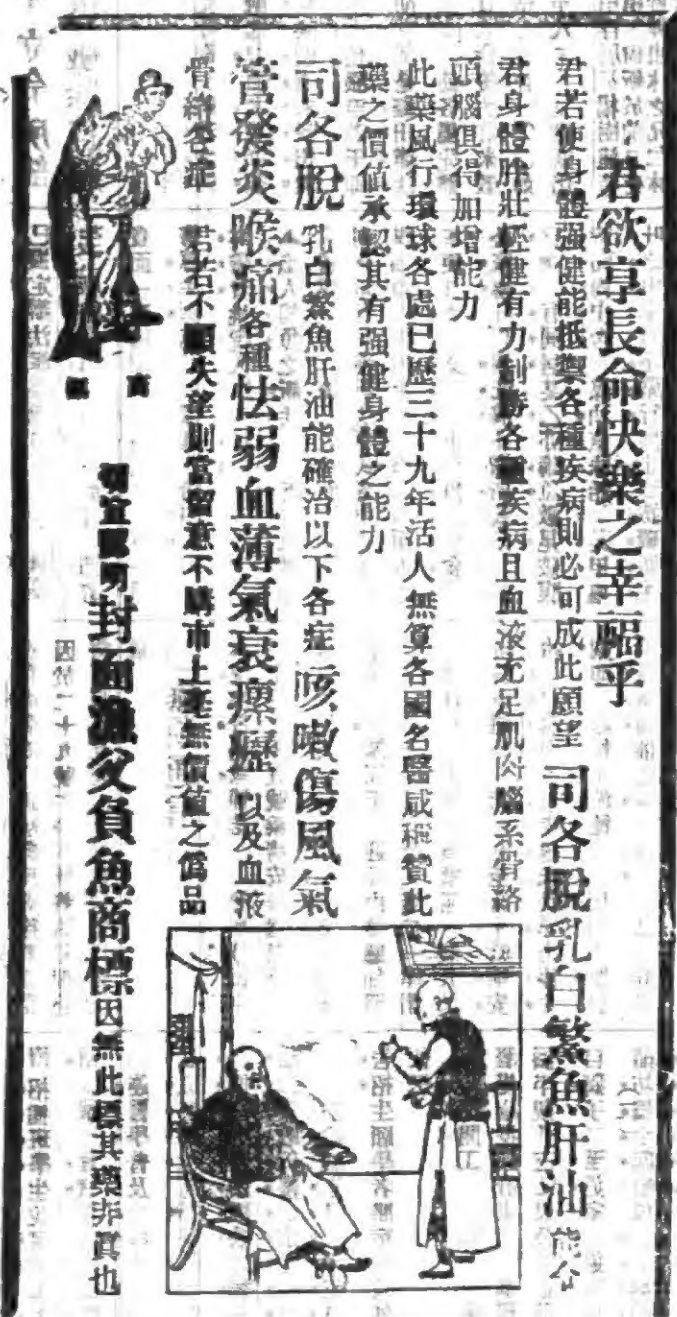 君欲享長命快樂之幸福乎
君若使身體强健能抵禦各種疾病則必可成此願望 司各脫乳白鰵魚肝油 能令
君身體胖壯輕健有力制勝各種疾病且血液充足肌肉腦系骨絡
頭腦俱得加增能力
此藥風行環球各處已歷三十九年活人無算各國名醫咸稱贊此
藥之價値承認其有强健身體之能力
司各脫 乳白鰵魚肝油能確治以下各症 咳嗽傷風氣
管發炎喉痛各種怯弱血薄氣衰瘰癧 以及血液
骨絡各症 君若不願失望則當留意不購市上毫無價値之僞品
商標
宜認明封面漁父負魚商標因無此標其藥非眞也